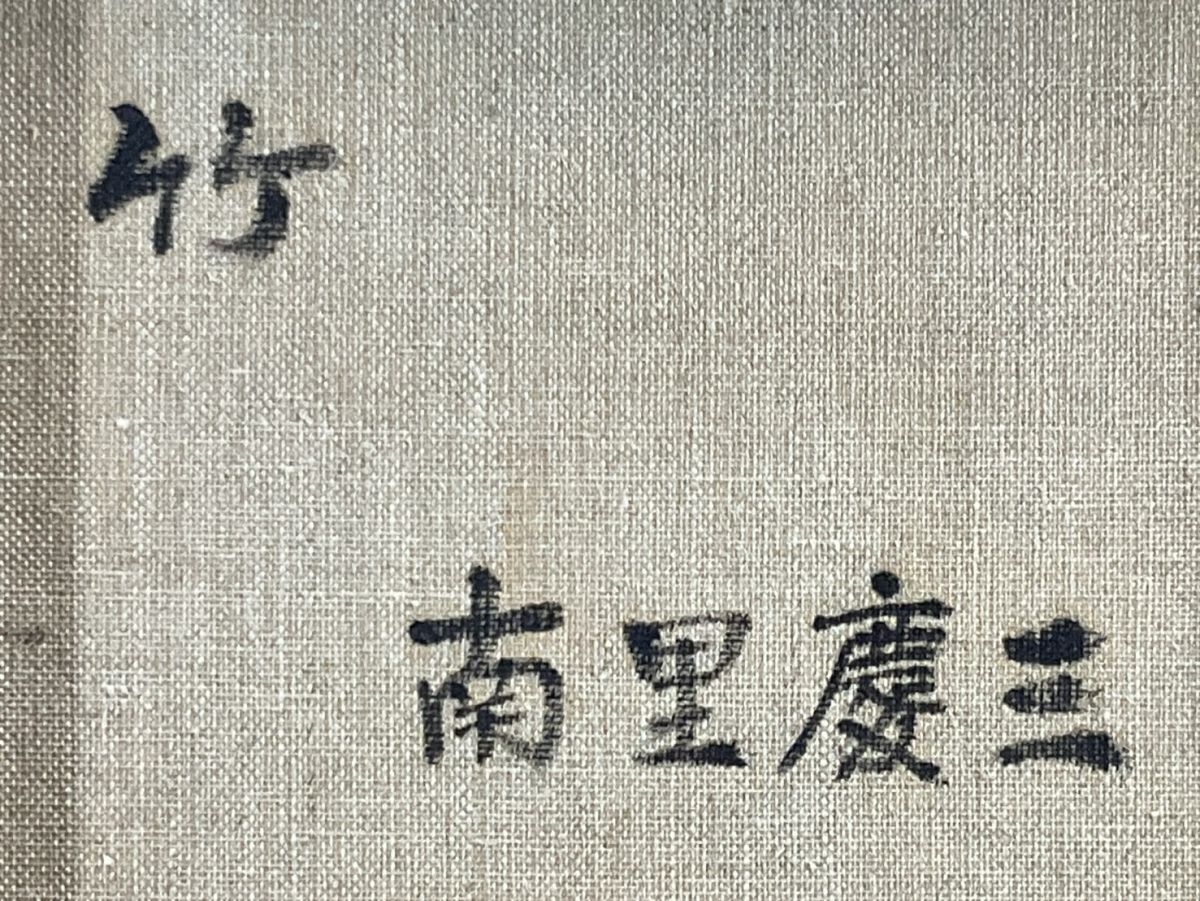 竹
南里慶三